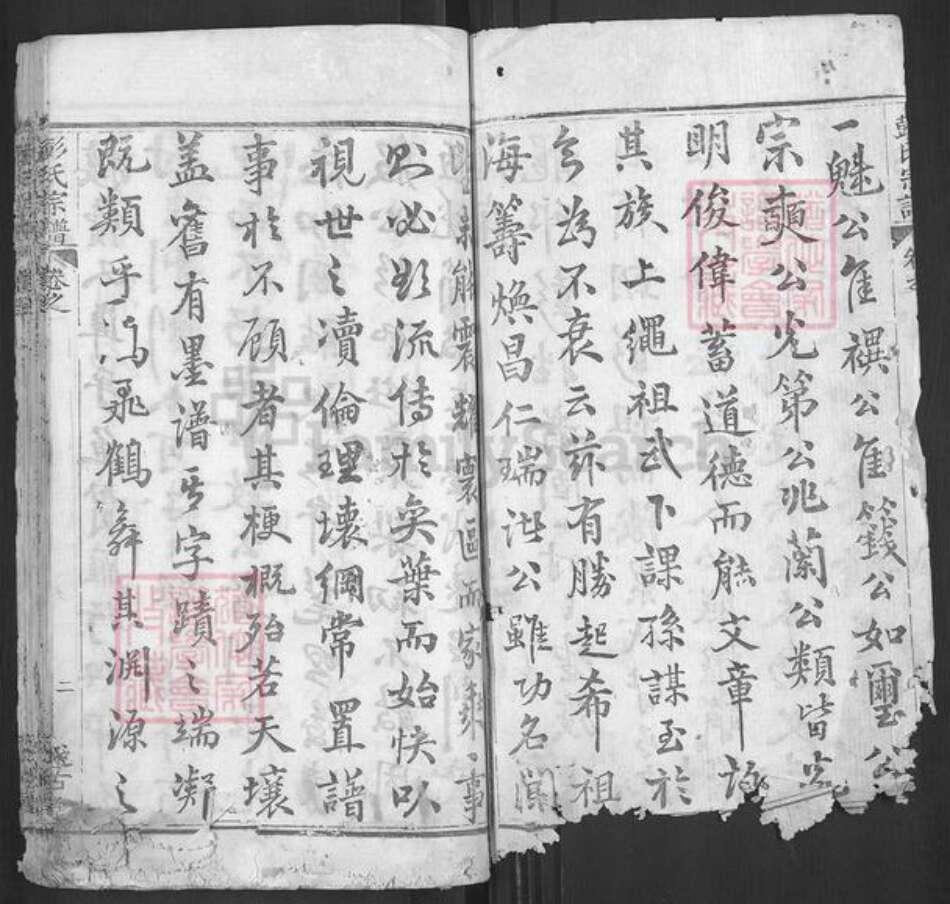 一魁公隹禩公隹籛公如爾璽公
宗奭公光第公兆蘭公類皆
明俊偉蓄道德而能文章
其族上繩祖武下課孫謀至於
為不衰云茲有勝起希祖
海籌煥昌仁瑞洪公雖功名
能震耀寰區而家乘一事
則必欲流傳於奕葉而始快以
視世之瀆倫理壞綱常置譜
事於不顧者其梗概殆若天壤
蓋舊有墨譜字蹟之端鄰
既類乎鳥飛鶴舞其淵源之
彭氏宗譜 卷之
二